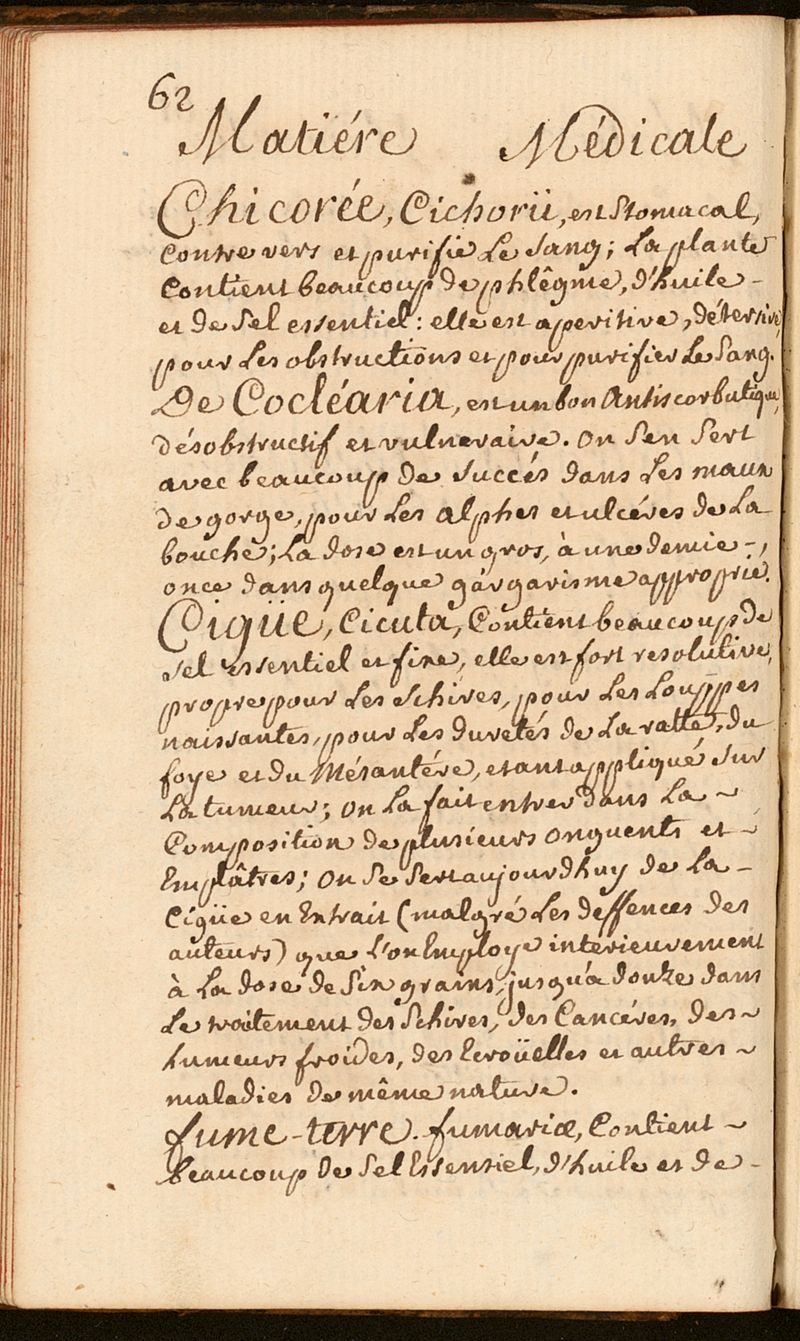 62
Matiére Médicale
Chicorée, Cichorii, est Stomacal,
Contre vers et purifie Le Sang; La plante
Contient beaucoup de phlêgme, d'huile -
et de Sel essentiel: elle est aperitive, détersive,
pour Les obstructions et pour purifier Le Sang.
De Cocléaria, est un bon Antiscorbutique,
désobstructif et vulneraire. On S'en Sert
avec beaucoup de Succés dans Les maux
de gorge, pour Les alphes et ulcéres de La
bouche; La dose est un gros, à une demie -,
once dans quelque gargarisme approprié.
Ciguë, Cicuta, Contient beaucoup de
Sel essentiel et fixe, elle est fort resolutive,
propre pour Les Schires, pour Les Louppes
naissantes, pour Les duretés de La ratte, du
foye et du Mésantére, etant appliqué Sur
La tumeur; On La fait entrer dans La ~
Composition de plusieurs Onguents et ~
Emplâtres; On Se Sert aujourdhuy de La -
Ciguë en Extrait (malgré Les deffences des
auteurs) que L'on Employe interieurement
à La dose de Six grains, jusqu'a douze dans
Le traitement des Schires, des Cancéres, des ~
humeurs froides, des Ecroüelles et autres ~
maladies de même nature.
fume-terre. fumariæ, Contient ~
beaucoup de Sel Essentiel, d'huile et de -